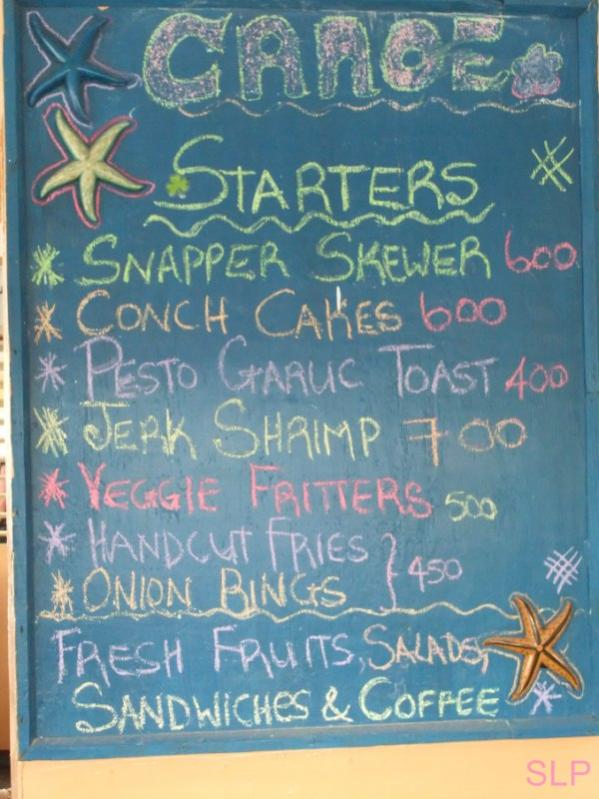 CANOE
STARTERS
SNAPPER SKEWER 600
CONCH CAKES 600
PESTO GARLIC TOAST 400
JERK SHRIMP 700
VEGGIE FRITTERS 500
HANDCUT FRIES
ONION BINGS } 450
FRESH FRUITS, SALADS,
SANDWICHES & COFFEE
SLP